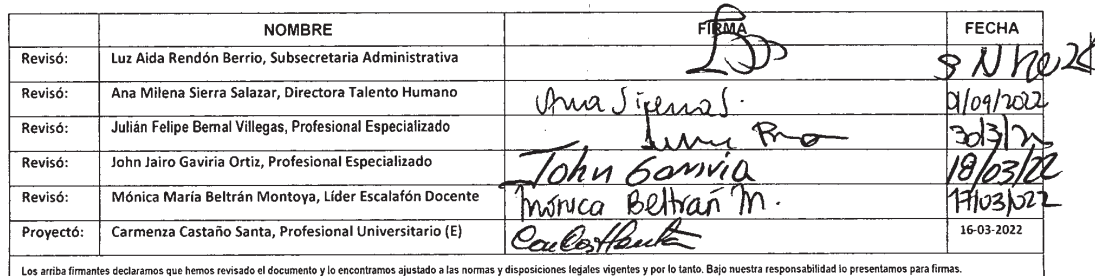 NOMBRE FIRMA FECHA
Revisó: Luz Aida Rendón Berrio, Subsecretaria Administrativa
Revisó: Ana Milena Sierra Salazar, Directora Talento Humano Ana Sierra S. 01/04/2022
Revisó: Julián Felipe Bernal Villegas, Profesional Especializado 30/3/22
Revisó: John Jairo Gaviria Ortiz, Profesional Especializado John Gaviria 18/03/22
Revisó: Mónica María Beltrán Montoya, Líder Escalafón Docente Mónica Beltrán M. 17/03/022
Proyectó: Carmenza Castaño Santa, Profesional Universitario (E) 16-03-2022
Los arriba firmantes declaramos que hemos revisado el documento y lo encontramos ajustado a las normas y disposiciones legales vigentes y por lo tanto. Bajo nuestra responsabilidad lo presentamos para firmas.